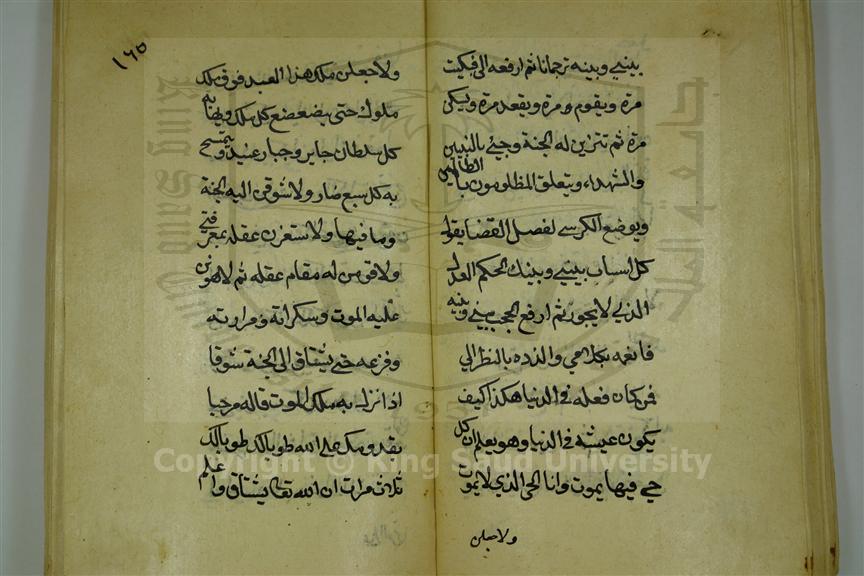 بيني وبينه ترجمانا ثم ارفعه الي فيكيت
مرة ويقوم مرة ويقعد مرة ويبكي
مرة ثم تتزين له الجنة وجئ بالنبيين
والشهداء ويتعلق المظلومون بالظالمين
ويوضع الكرسي لفصل القضا يقول
كل انسان بيني وبينك الحكم العدل
الذي لا يجور ثم ارفع الحجب بيني وبينه
فانغمه بكلامي والذذه بالنظر الي
فمن كان فعله في الدنيا هكذا كيف
يكون عيشه في الدنيا وهو يعلم ان كل
حي فيها يموت وانا الحي الذي لا يموت
ولاجعلن
١٦٥
ولاجعلن ملك هذا العبد فوق ملك
ملوك حتى يضعضع كل ملك ويهابه
كل سلطان جاير وجبار عنيد ويتمسح
به كل سبع ضار ولاشوقن اليه الجنة
وما فيها ولاستغرن عقله بمعرفتي
ولاقومن له مقام عقله ثم لاهونن
عليه الموت وسكراته ومرارته
وفزعه حتى يشتاق الى الجنة شوقا
اذا نزل به ملك الموت قاله مرحبا
بقدومك على الله طوبالك طوبالك
ثلاث مرات ان الله تعالى يشتاق واعلم
Copyright © King Saud University